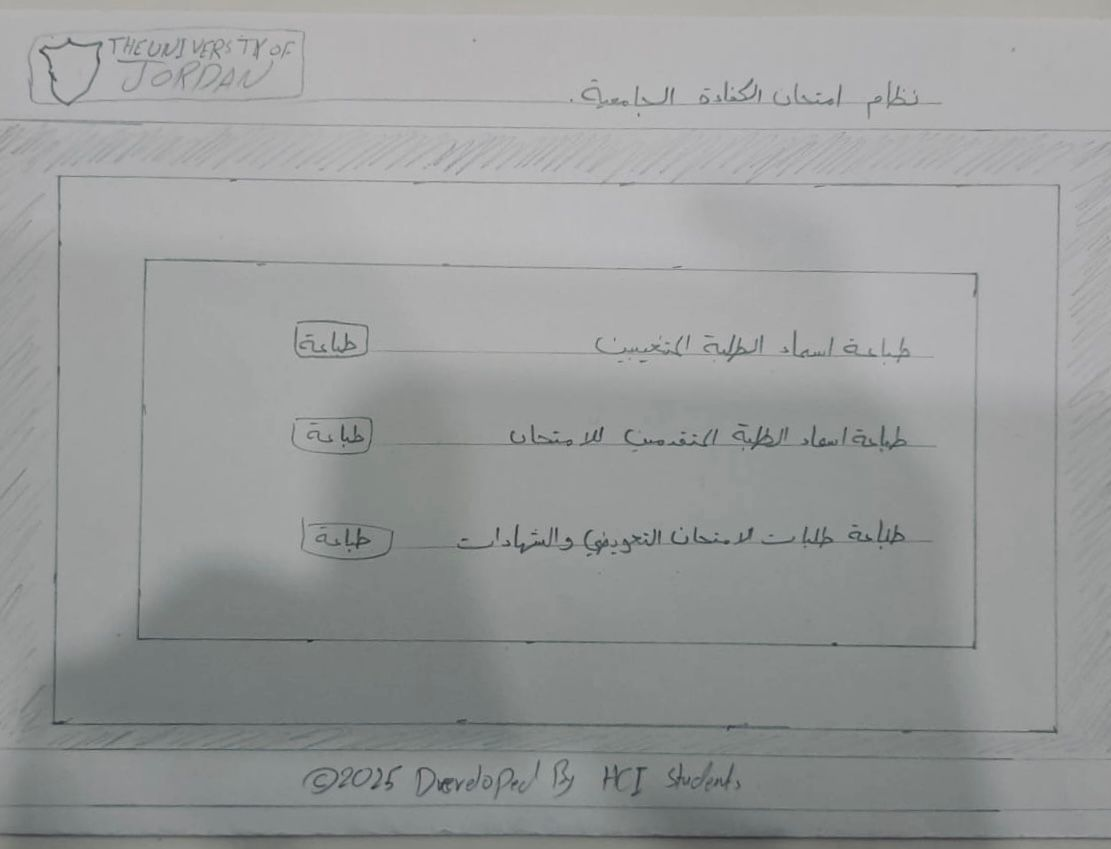 THE UNIVERSITY OF
JORDAN
نظام امتحان الكفاءة الجامعية.
طباعة اسماء الطلبة المتغيبين
طباعة
طباعة اسماء الطلبة المتقدمين للامتحان
طباعة
طباعة طلبات لامتحان التعويضي والشهادات
طباعة
©2025 Dveveloped By HCI Students